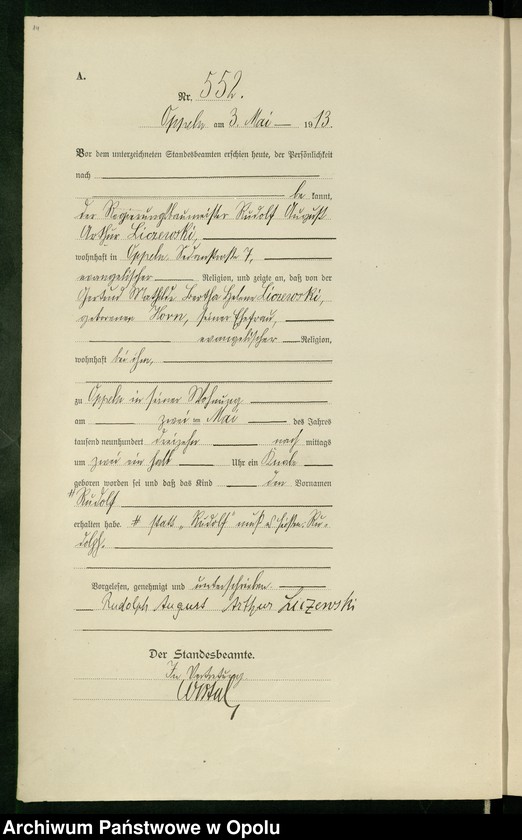 A.
Nr. 552.
Oppeln am 3. Mai 1913.
Vor dem unterzeichneten Standesbeamten erschien heute, der Persönlichkeit
nach
be kannt,
der Regierungsbaumeister Rudolf August
Arthur Liczewski,
wohnhaft in Oppeln Sedanstraße 7,
evangelischer Religion, und zeigte an, daß von der
Gertrud Mathilde Bertha Helene Liczewski,
geborenen Horn, seiner Ehefrau,
evangelischer Religion,
wohnhaft bei ihm,
zu Oppeln in seiner Wohnung
am zwei ten Mai des Jahres
tausend neunhundert dreizehn nach mittags
um zwei ein halb Uhr ein Knabe
geboren worden sei und daß das Kind den Vornamen
# Rudolf
erhalten habe. # statt „Rudolf" muß es heißen: Ru-
dolph.
Vorgelesen, genehmigt und unterschrieben
Rudolph August Arthur Liczewski
Der Standesbeamte.
In Vertretung
Archiwum Państwowe w Opolu